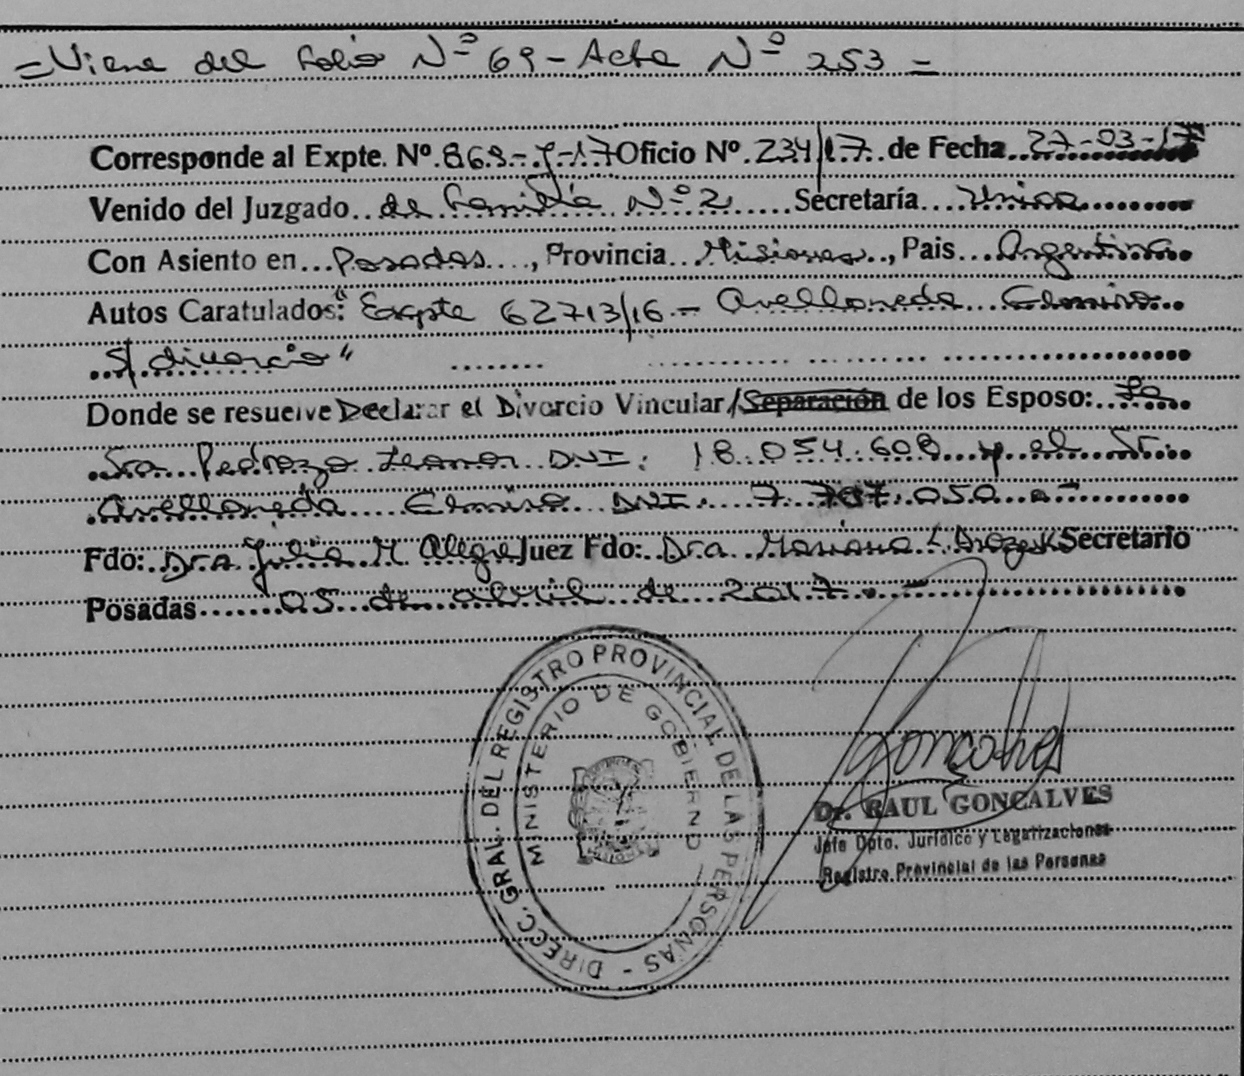 =Viene del folio Nº 69-Acta Nº 253=
Corresponde al Expte. Nº.868-J-17 Oficio Nº.234/17. de Fecha 27-03-17
Venido del Juzgado de Familia Nº 2 Secretaría Unica
Con Asiento en Posadas, Provincia Misiones, Pais Argentina
Autos Caratulados: "Expte 62713/16 - Avellaneda Elmiro
S/ divorcio"
Donde se resuelve Declarar el Divorcio Vincular/Separación de los Esposo: La
Sra. Pedrozo Leonor DNI: 18.054.608 y el Sr.
Avellaneda Elmiro DNI. 7.707.050
Fdo: Dra Julia M Alegre Juez Fdo: Dra. Mariana Secretario
Posadas 05 de abril de 2017.-
DIRECC. GRAL. DEL REGISTRO PROVINCIAL DE LAS PERSONAS -
MINISTERIO DE GOBIERNO
Goncalves
Dr. RAUL GONCALVES
Jefe Dpto. Jurídico y Legalizaciones
Registro Provincial de las Personas